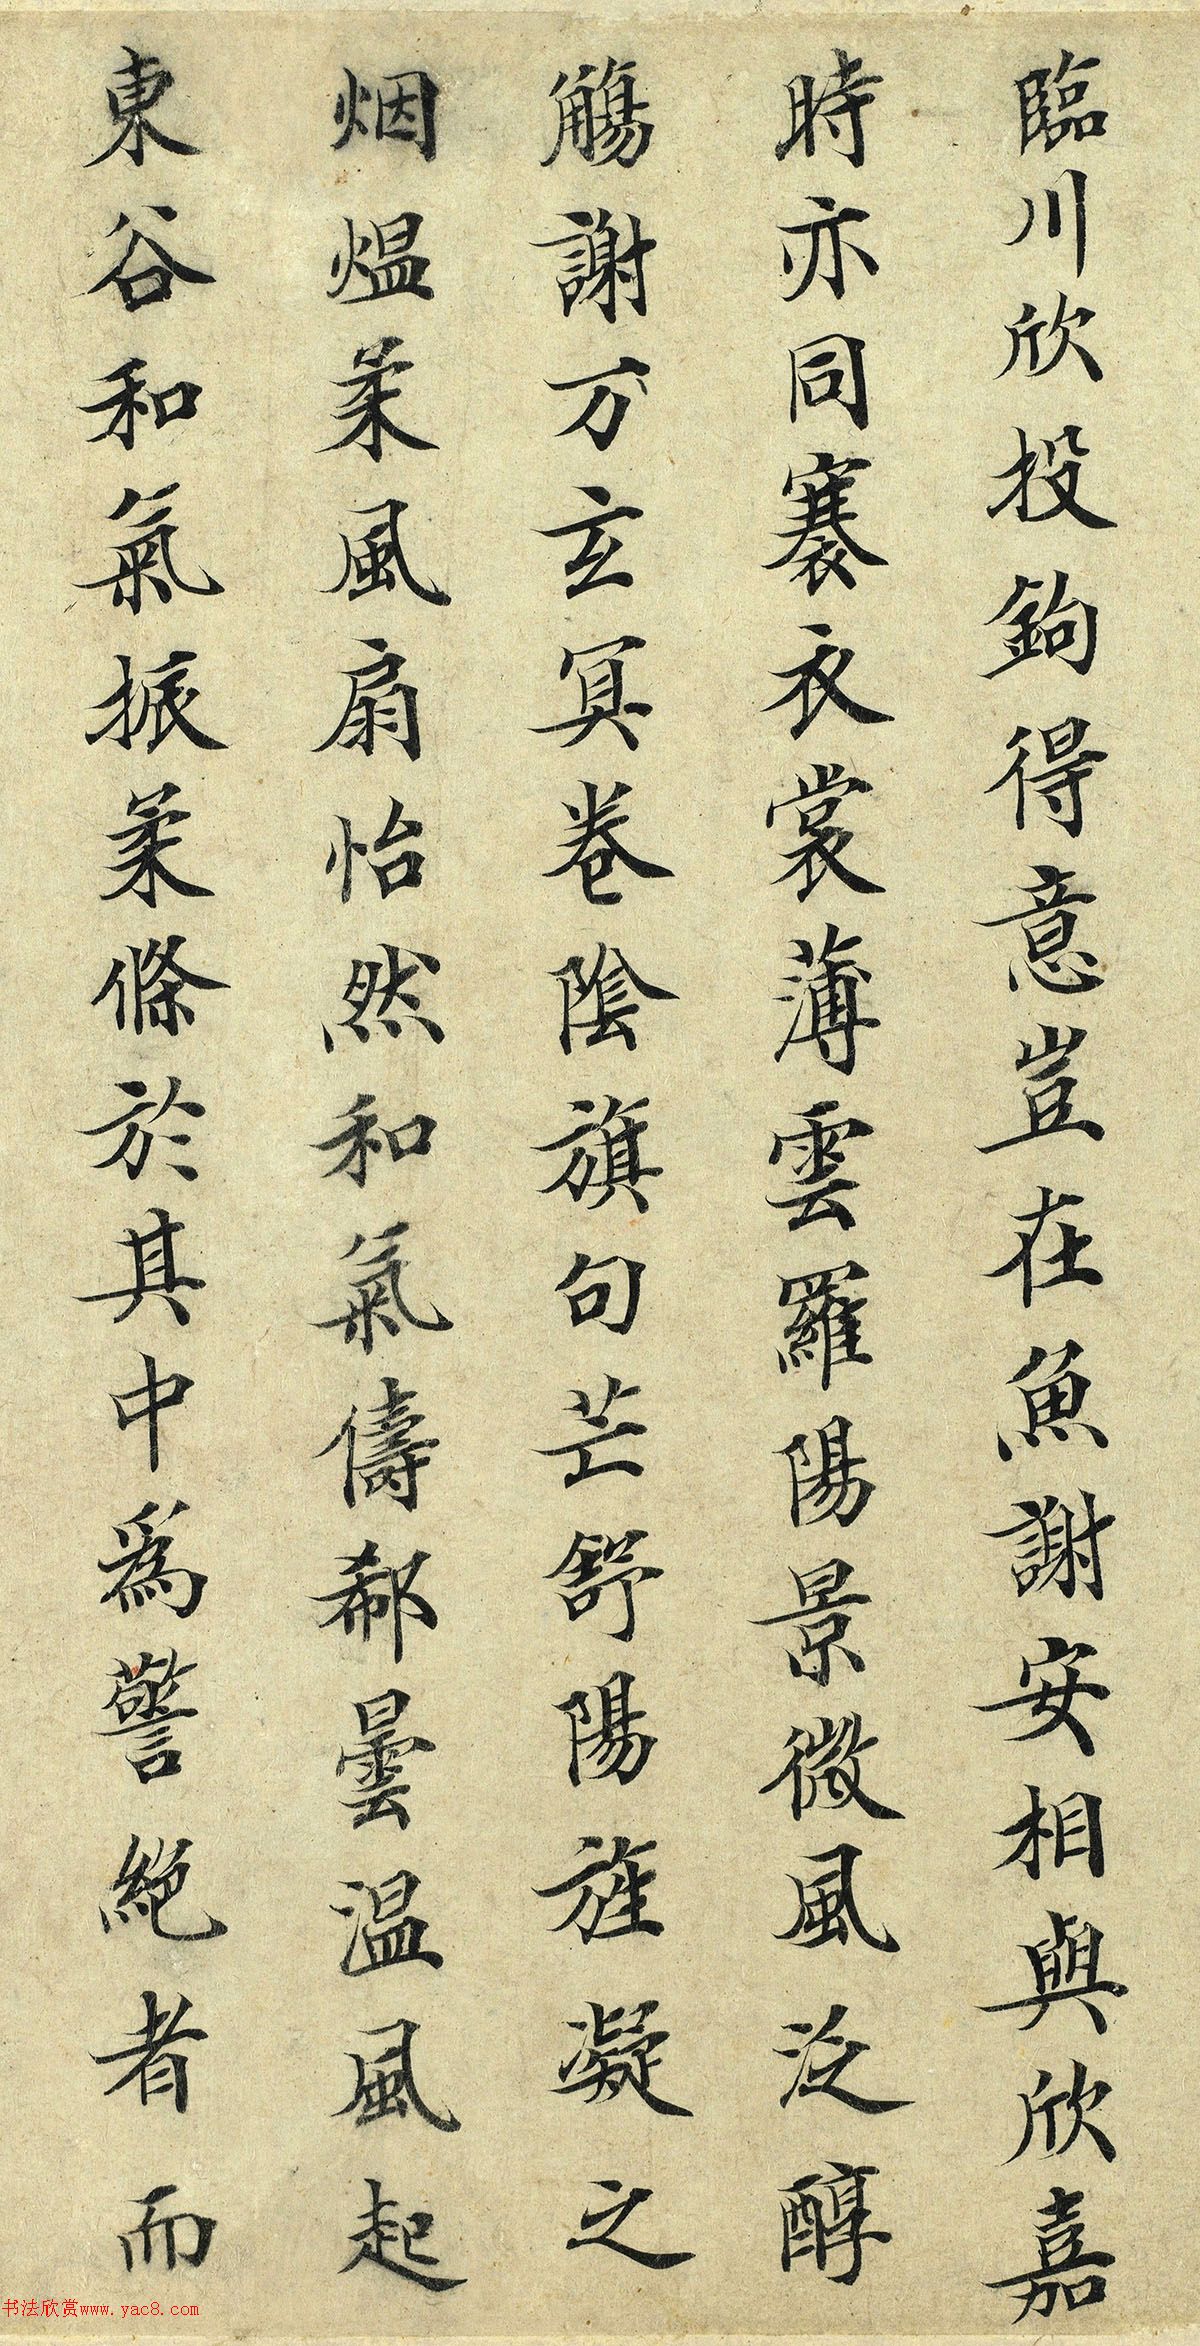 臨川欣投鉤得意豈在魚謝安相與欣嘉
時亦同褰衣裳薄雲羅陽景微風泛醇
觴謝万玄冥卷陰旗句芒舒陽旌凝之
烟熅柔風扇怡然和氣儔郗曇温風起
東谷和氣振柔條於其中為警絕者而
书法欣赏www.yac8.com